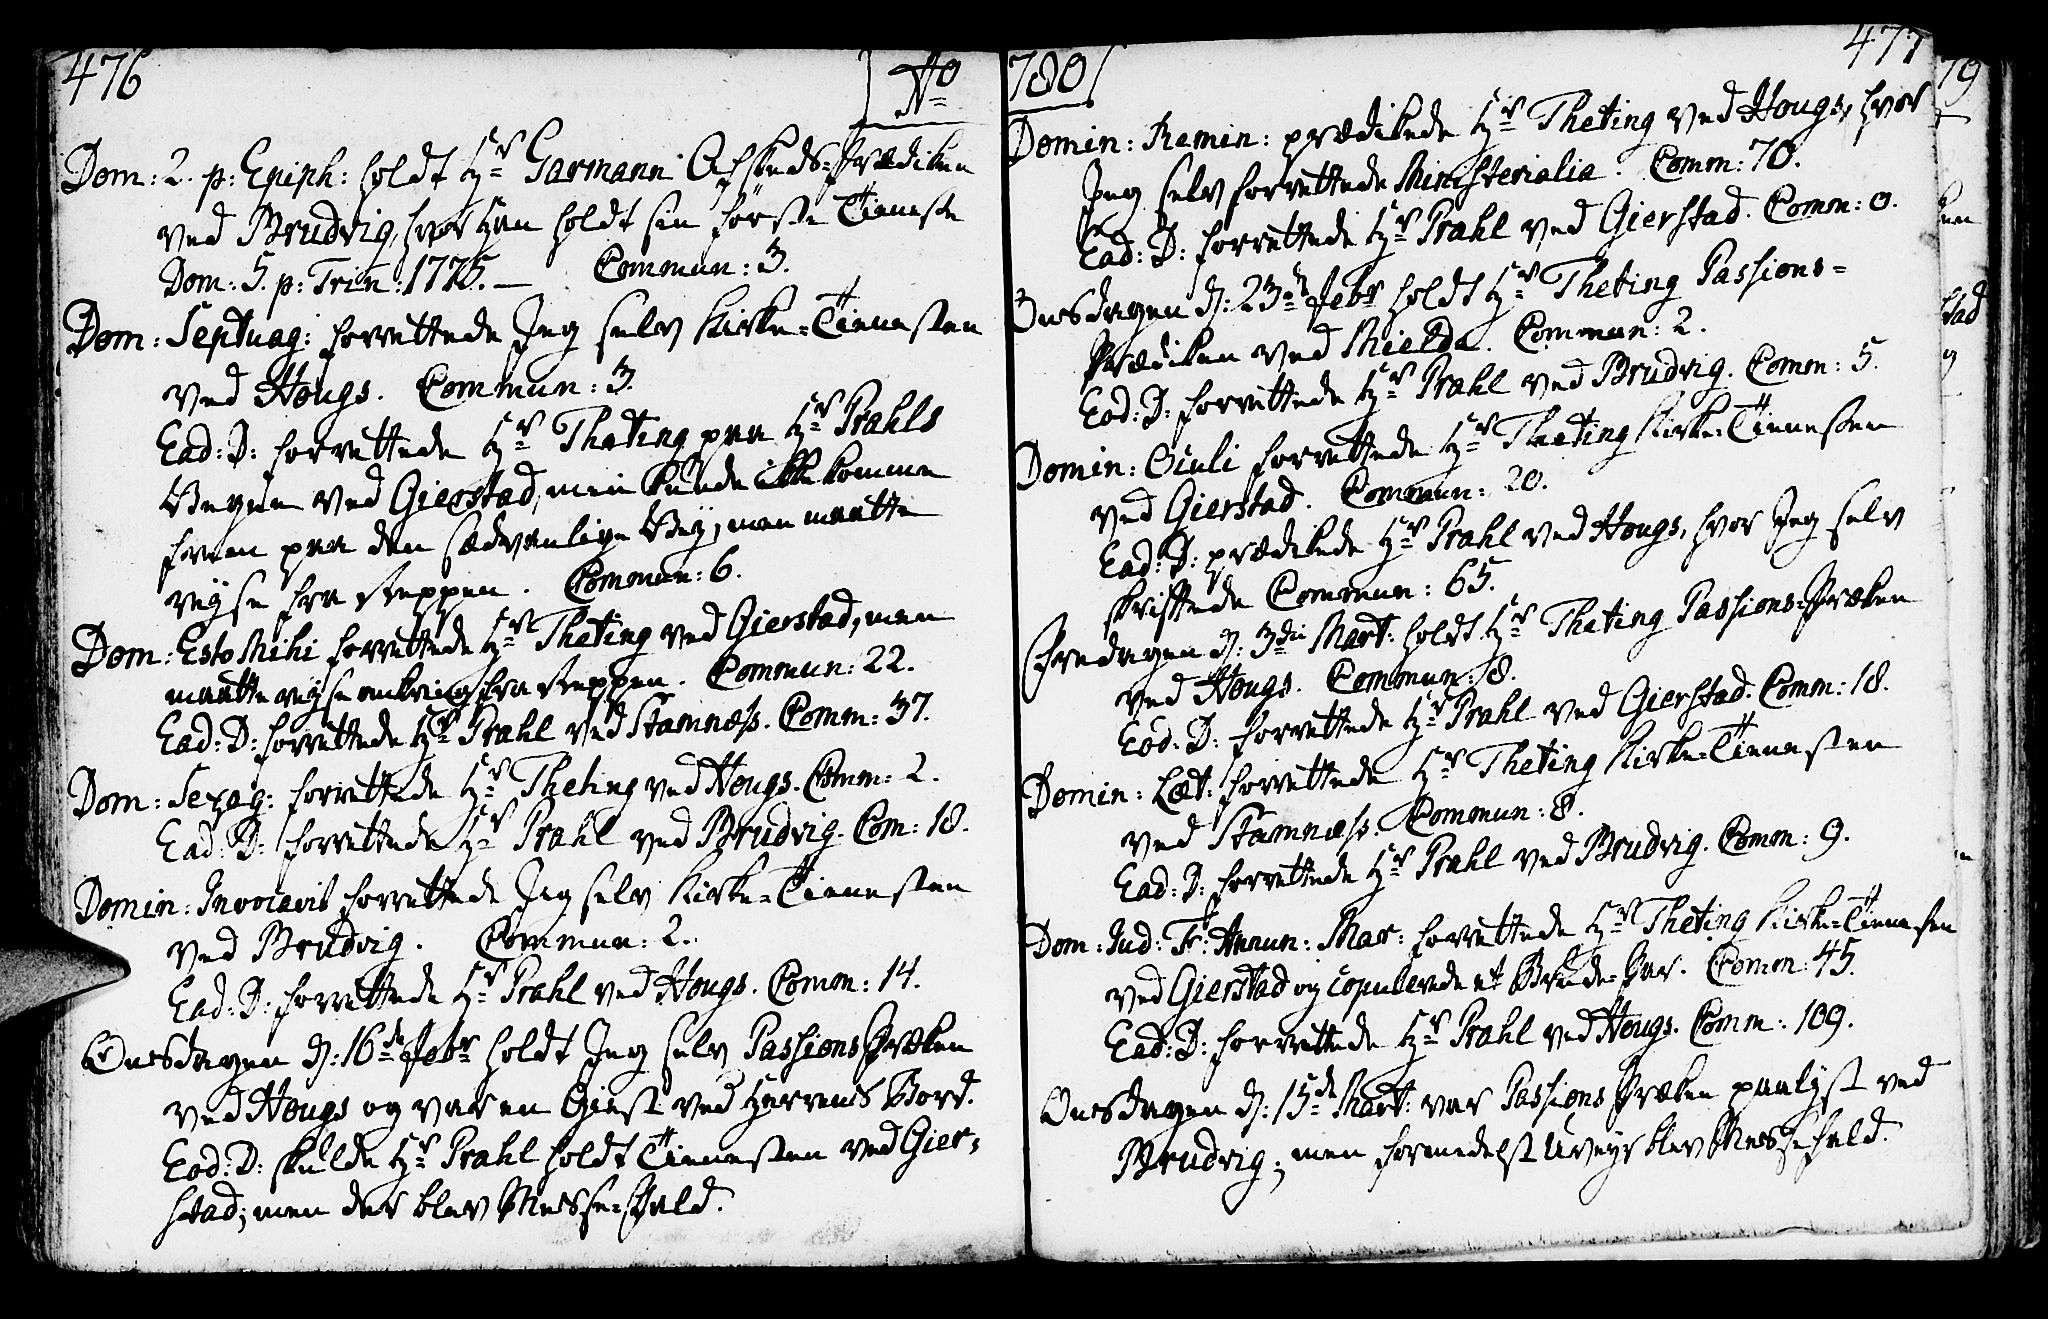 476
Aº
Dom: 2. p: Epiph: holdt Hr Garmann Afskeds-Prædiken
ved Brudvig, hvor Han holdt sin förste Tieneste
Dom: 5. p: Trin: 1775. — Commun: 3.
Dom: Septuag: forrettede Jeg selv Kirke-Tienesten
ved Hougs. Commun: 3.
Ead: D: forrettede Hr Theting paa Hr Prahls
Vegne ved Gierstad, men kunde ikke komme
frem paa den sædvanlige Vey, men maatte
reyse fra Steppen. Commun: 6.
Dom: Esto Mihi forrettede Hr Theting ved Gierstad, men
maatte reyse omkring fra Steppen. Commun: 22.
Ead: D: forrettede Hr Prahl ved Stamnæss. Comm: 37.
Dom: Sexag: forrettede Hr Theting ved Hougs. Comm: 2.
Ead: D: forrettede Hr Prahl ved Brudvig. Com: 18.
Domin: Invocavit forrettede Jeg selv Kirke-Tienesten
ved Brudvig. Commun: 2.
Ead: D: forrettede Hr Prahl ved Hougs. Comm: 14.
Onsdagen d: 16de Febr holdt Jeg selv Passions Præken
ved Hougs og var en Giest ved Herrens Bord.
Eod: D: skulde Hr Prahl holdt Tienesten ved Gier-
stad; men der blev Messe-Fald.
477
780
Domin: Remin: prædikede Hr Theting ved Hougs, hvor
Jeg selv forrettede Ministerialia. Comm: 70.
Ead: D: forrettede Hr Prahl ved Gierstad. Comm: 0.
Onsdagen d: 23de Febr holdt Hr Theting Passions-
Prædiken ved Skielde. Commun: 2.
Eod: D: forrettede Hr Prahl ved Brudvig. Comm: 5.
Domin: Oculi forrettede Hr Theting Kirke-Tienesten
ved Gierstad. Commun: 20.
Ead: D: prædikede Hr Prahl ved Hougs, hvor Jeg selv
skriftede Commun: 65.
Fredagen d: 3die Mart: holdt Hr Theting Passions-Præken
ved Hougs. Commun: 8.
Eod: D: forrettede Hr Prahl ved Gierstad. Comm: 18.
Domin: Læt: forrettede Hr Theting Kirke-Tienesten
ved Stamnæss. Commun: 8.
Ead: D: forrettede Hr Prahl ved Brudvig. Comm: 9.
Dom: Jud: Fr: Annun: Mar: forrettede Hr Theting Kirke-Tienesten
ved Gierstad og copulerede et Brude-Par. Comm: 45.
Ead: D: forrettede Hr Prahl ved Hougs. Comm: 109.
Onsdagen d: 15de Mart: var Passions Præken paalyst ved
Brudvig; men formedelst Uveyr blev Messefald.